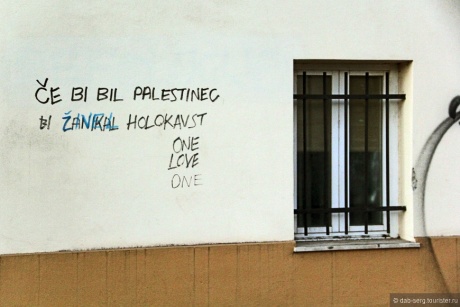 ČE BI BIL PALESTINEC
BI ŽANIKAL HOLOKAVST
ONE
LOVE
ONE
© dab-serg.tourister.ru